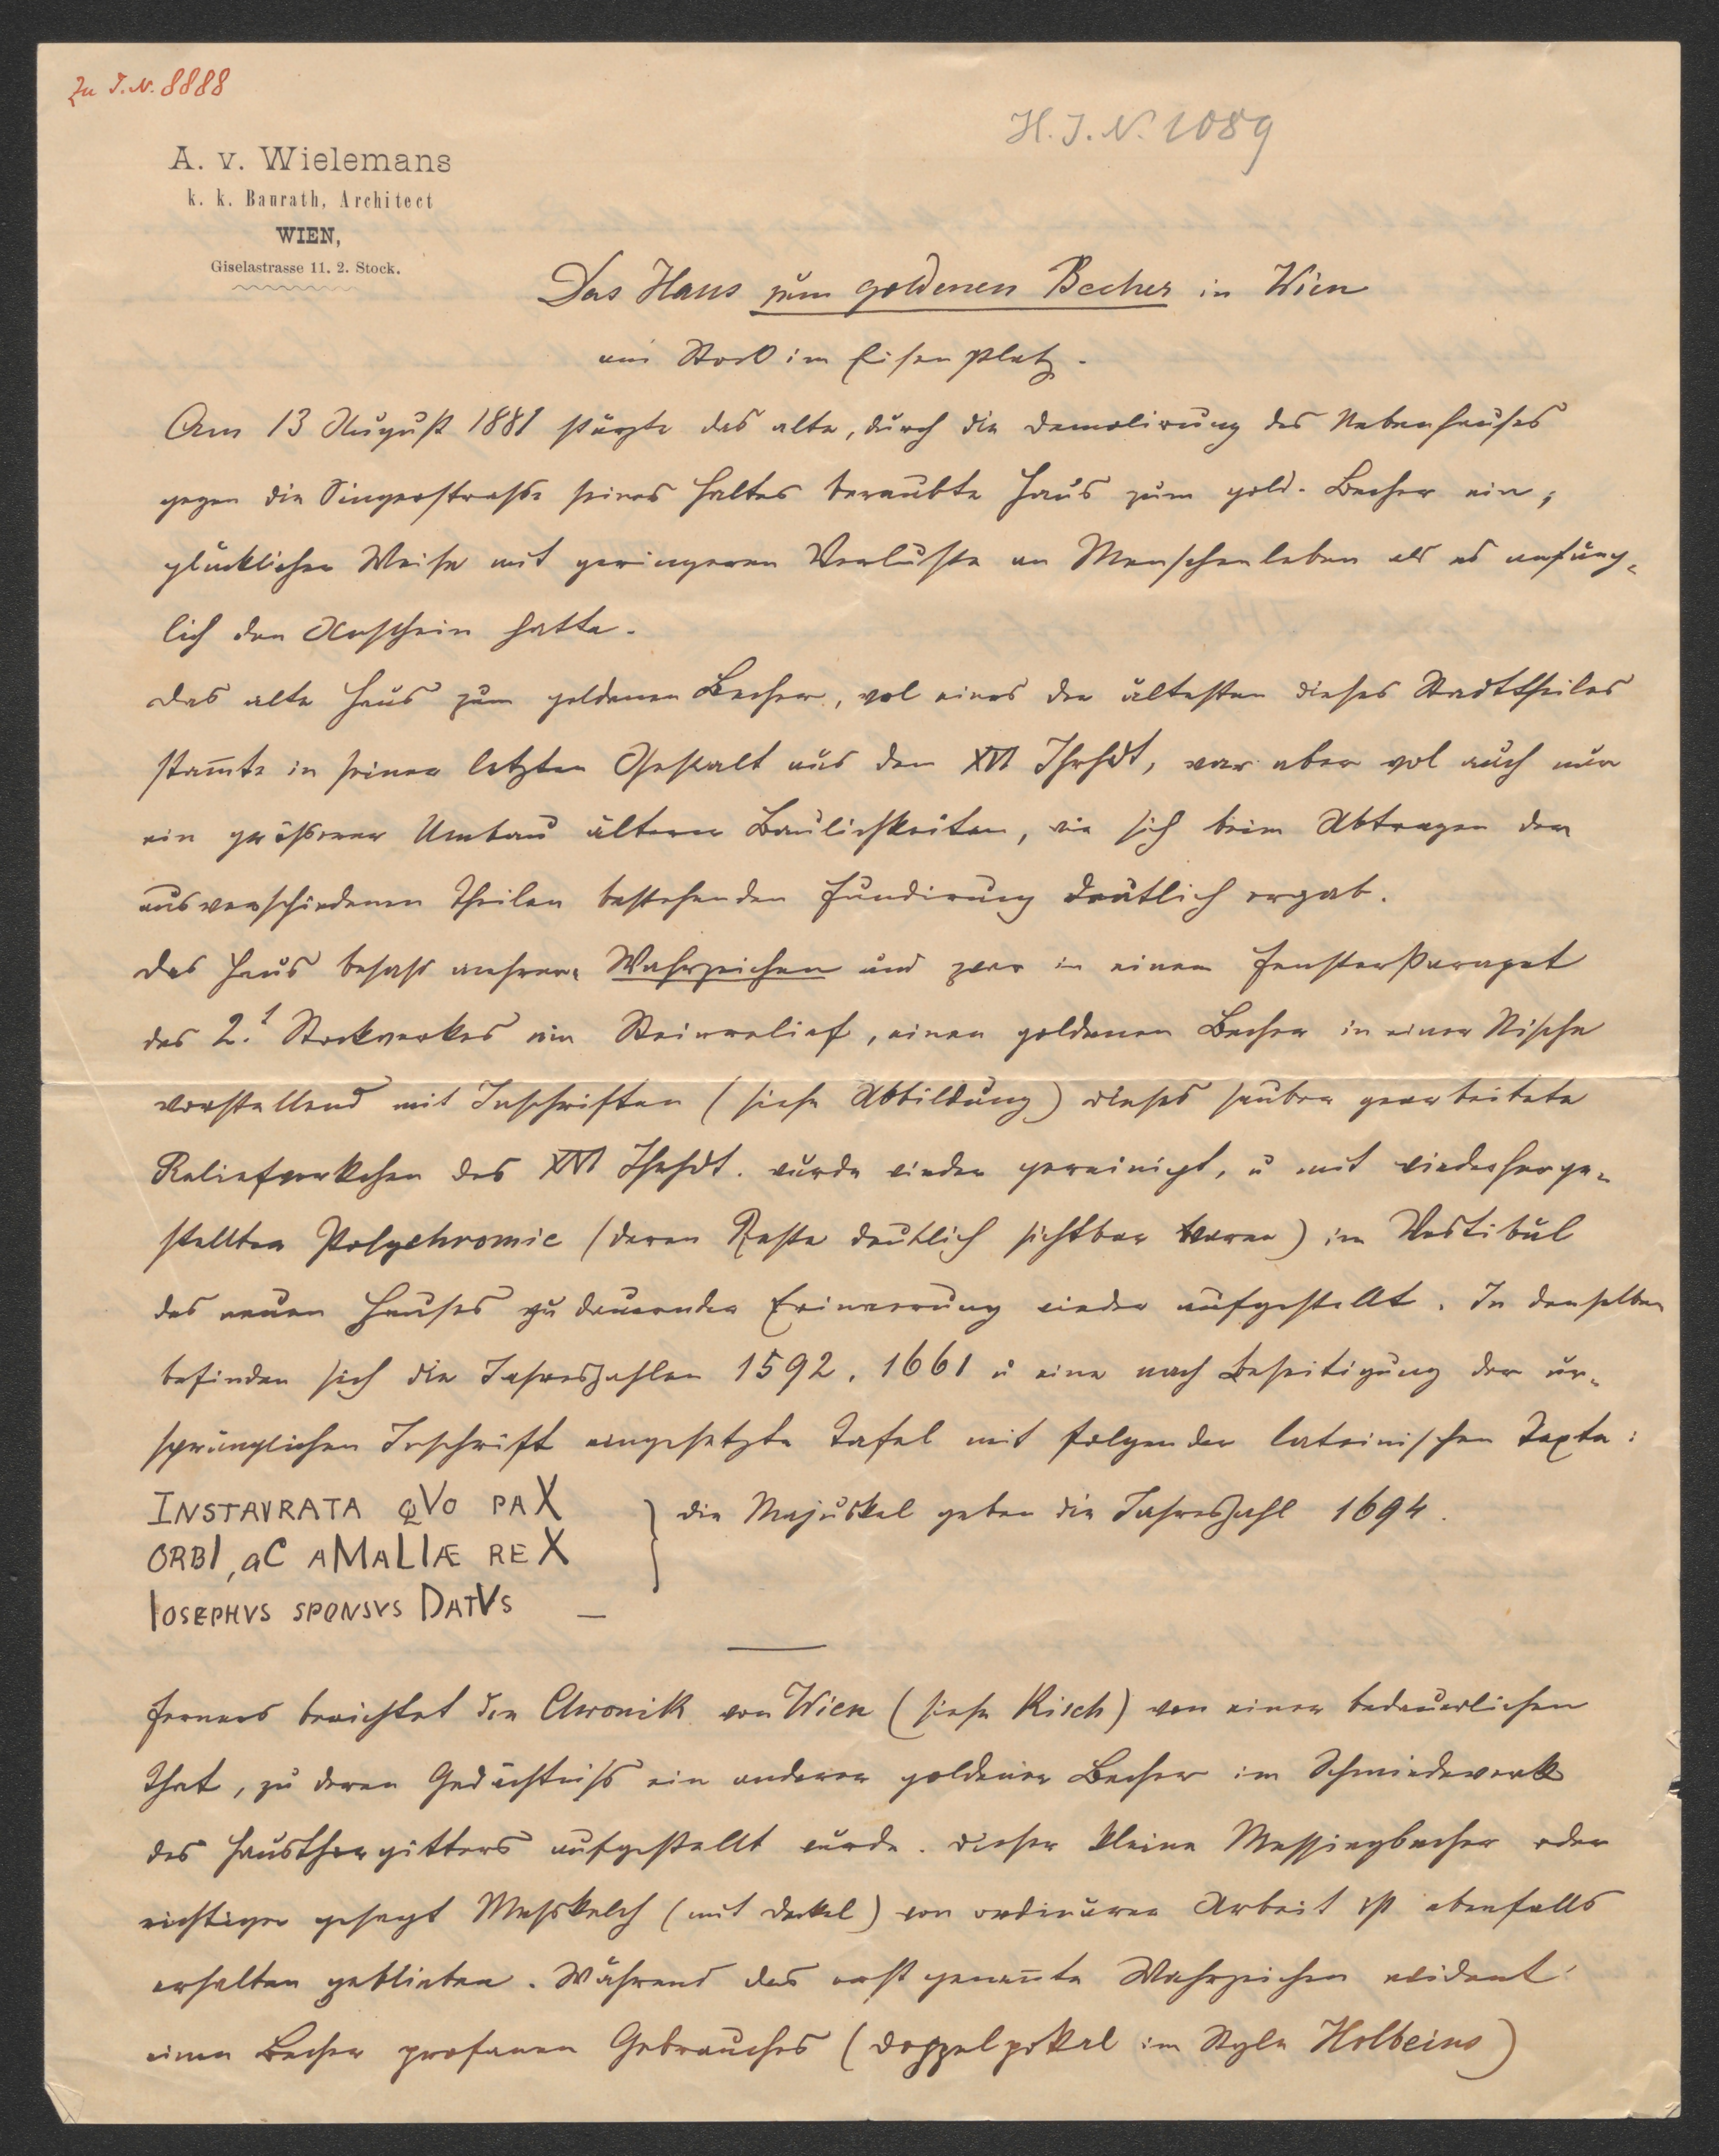 Zu I.N. 8888
H. I. N. 1089
A. v. Wielemans
k. k. Baurath, Architect
WIEN,
Giselastrasse 11. 2. Stock.
Das Haus zum goldenen Becher in Wien
am Stock im Eisen Platz.
Am 13 August 1881 stürzte das alte, durch die Demolirung des Nebenhauses
gegen die Singerstrasse seines Haltes beraubte Haus zum gold. Becher ein,
glücklicher Weise mit geringerem Verluste an Menschenleben als es anfäng-
lich den Anschein hatte.
Das alte Haus zum goldenen Becher, wol eines der ältesten dieses Stadttheiles
stam̄te in seiner letzten Gestalt aus dem XVI Jhrhdt, war aber wol auch nur
ein grösserer Umbau älterer Baulichkeiten, wie sich beim Abtragen der
aus verschiedenen Theilen bestehenden Fundirung deutlich ergab.
Das Haus besass mehrere Wahrzeichen und zwar in einem Fensterparapet
des 2. Stockwerkes ein Steinrelief, einen goldenen Becher in einer Nische
vorstellend mit Inschriften (siehe Abbildung) dieses sauber gearbeitete
Reliefwerkchen des XVI Jhrhdt. wurde wieder gereinigt, u mit wiederherge-
stellter Polychromie (deren Reste deutlich sichtbar waren) im Vestibul
des neuen Hauses zu dauernder Erinnerung wieder aufgestellt. In demselben
befinden sich die Jahreszahlen 1592, 1661 u eine nach Beseitigung der ur-
sprünglichen Inschrift eingesetzte Tafel mit folgendem lateinischen Texte:
INSTAVRATA QVO PAX
ORBI, aC AMALIÆ REX
IOSEPHVS SPONSVS DATVS —
die Majuskel geben die Jahreszahl 1694.
Ferners berichtet die Chronik von Wien (siehe Kisch) von einer bedauerlichen
That, zu deren Gedächtniss ein anderer goldener Becher im Schmiedewerk
des Hausthorgitters aufgestellt wurde. Dieser kleine Messingbecher oder
richtiger gesagt Messkelch (mit Deckel) von ordinärer Arbeit ist ebenfalls
erhalten geblieben. Während das erst genan̄te Wahrzeichen evident
einen Becher profanen Gebrauches (Doppelpokal im Style Holbeins)